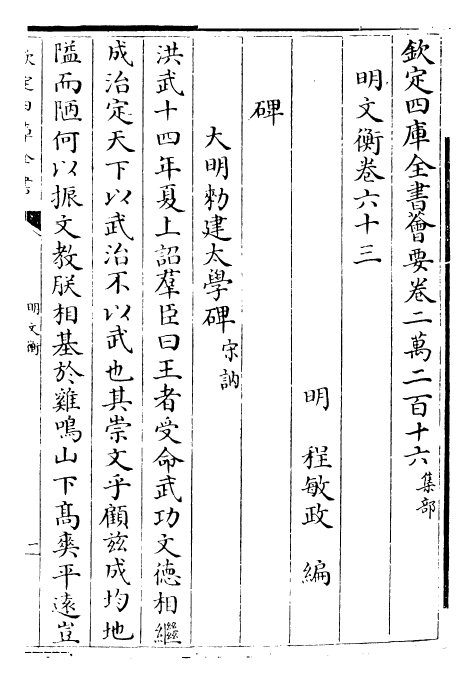 欽定四庫全書薈要卷二萬二百十六集部
明文衡卷六十三
明 程敏政 編
碑
大明勑建太學碑宋訥
洪武十四年夏上詔羣臣曰王者受命武功文德相繼
成治定天下以武治不以武也其崇文乎顧兹成均地
隘而陋何以振文教朕相基於雞鳴山下髙爽平遠豈
欽定四庫全書
明文衡